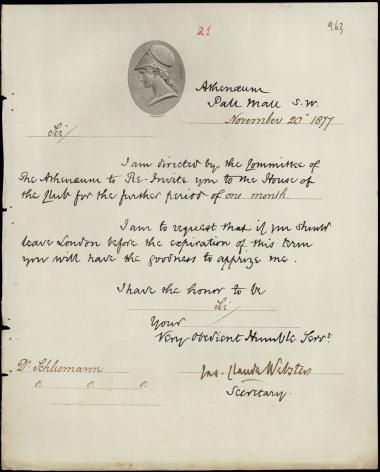 21
963
Athenæum
Pall Mall S.W.
November 20" 1877
Sir/
I am directed by the Committee of
The Athenæum to Re-Invite you to the House of
the Club for the further period of one month.
I am to request that if you should
leave London before the expiration of this term
you will have the goodness to apprize me.
I have the honor to be
Sir/
Your
Very Obedient Humble Servt.
Dr. Schliemann
Jas. Claude Webster
Secretary.